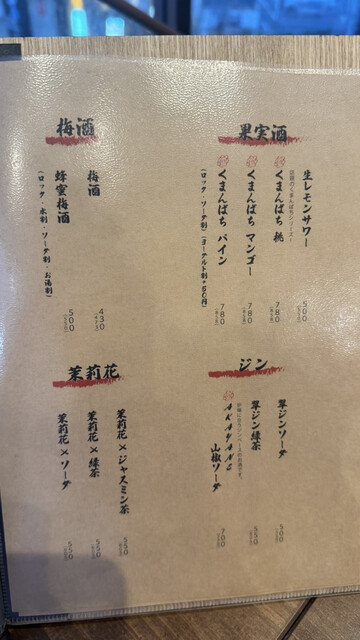 果実酒
生レモンサワー 500
くまんばち 桃 780
くまんばち マンゴー 780
くまんばち パイン 780
(ロック・ソーダ割)(ヨーグルト割+50円)
梅酒
梅酒 430
蜂蜜梅酒 500
(ロック・水割・ソーダ割・お湯割)
ジン
翠ジンソーダ 500
翠ジン緑茶 550
AKAYANE 山椒ソーダ 700
茉莉花
茉莉花×ジャスミン茶 550
茉莉花×緑茶 550
茉莉花×ソーダ 550